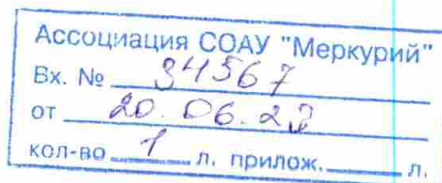 Ассоциация СОАУ "Меркурий"
Вх. № 34567
от 20.06.23
кол-во 1 л. прилож. л.